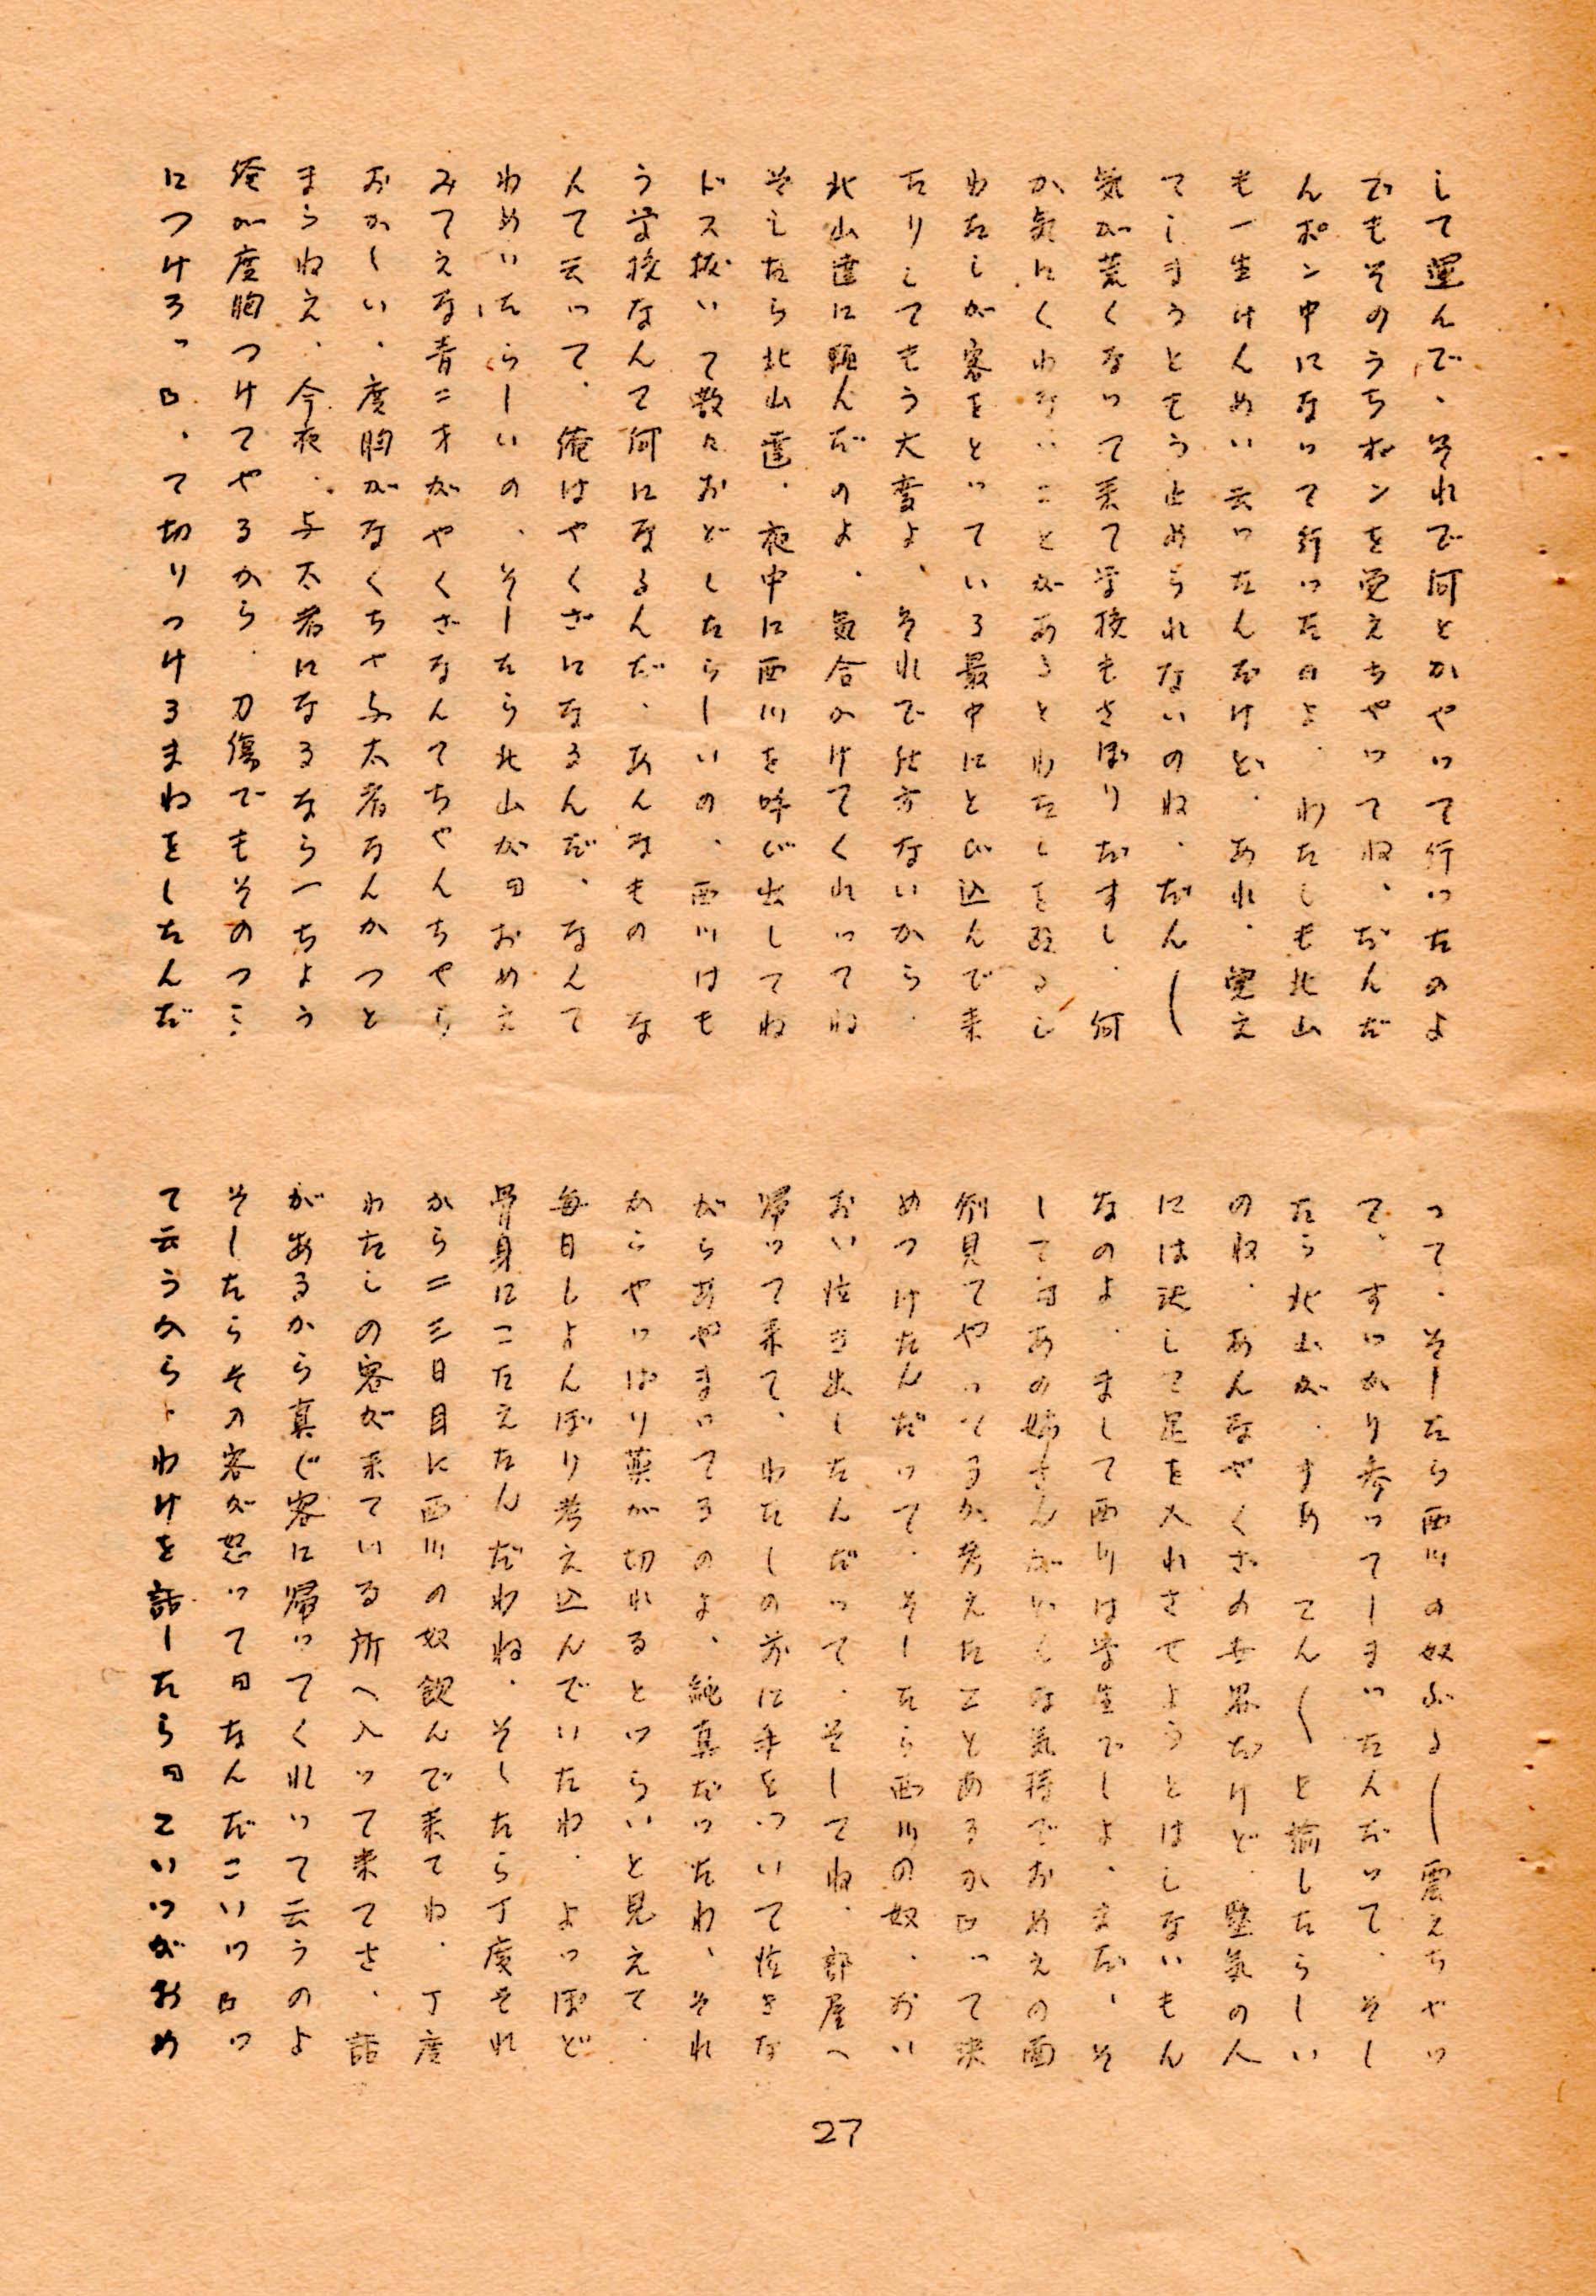 して運んで、それで何とかやって行ったのよ
でもそのうちポンを覚えちゃってね、だんだ
んポン中になって行ったのよ、わたしも北山
も一生けんめい云ったんだけど、あれ、覚え
てしまうともう止められないのね、だん〳〵
気が荒くなって来て学校もさぼりだすし、何
か気にくわないことがあるとわたしを殴るし
わたしが客をとっている最中にとび込んで来
たりしてもう大変よ、それで仕方ないから、
北山達に頼んだのよ、気合かけてくれってね
そしたら北山達、夜中に西川を呼び出してね
ドス抜いて散々おどしたらしいの、西川はも
う学校なんて何になるんだ、あんなもの　な
んて云って、俺はやくざになるんだ、なんて
わめいたらしいの、そしたら北山が『おめえ
みてえな青二才がやくざなんてちゃんちゃら
おかしい、度胸がなくちゃ与太者なんかつと
まらねえ、今夜、与太者になるなら一ちょう
俺が度胸つけてやるから、刀傷でもそのつら
につけろっ』、て切りつけるまねをしたんだ
って、そしたら西川の奴ぶる〳〵震えちゃっ
て、すっかり参ってしまったんだって、そし
たら北山が、すあ　てん〳〵と諭したらしい
のね、あんなやくざの世界だけど、堅気の人
には決して足を入れさせようとはしないもん
なのよ、まして西川は学生でしょ、まだ、そ
して『あの姉さんがどんな気持でおめえの面
倒見てやってるか考えたことあるか』って決
めつけたんだって、そしたら西川の奴、おい
おい泣き出したんだって、そしてね、部屋へ
帰って来て、わたしの前に手をついて泣きな
がらあやまってるのよ、純真だったわ、それ
からやっぱり薬が切れるとつらいと見えて、
毎日しょんぼり考え込んでいたわ、よっぽど
骨身にこたえたんだわね、そしたら丁度それ
から二三日目に西川の奴飲んで来てね、丁度
わたしの客が来ている所へ入って来てさ、話
があるから真ぐ客に帰ってくれって云うのよ
そしたらその客が怒って『なんだこいつ』っ
て云うから、わけを話したら『こいつがおめ
27